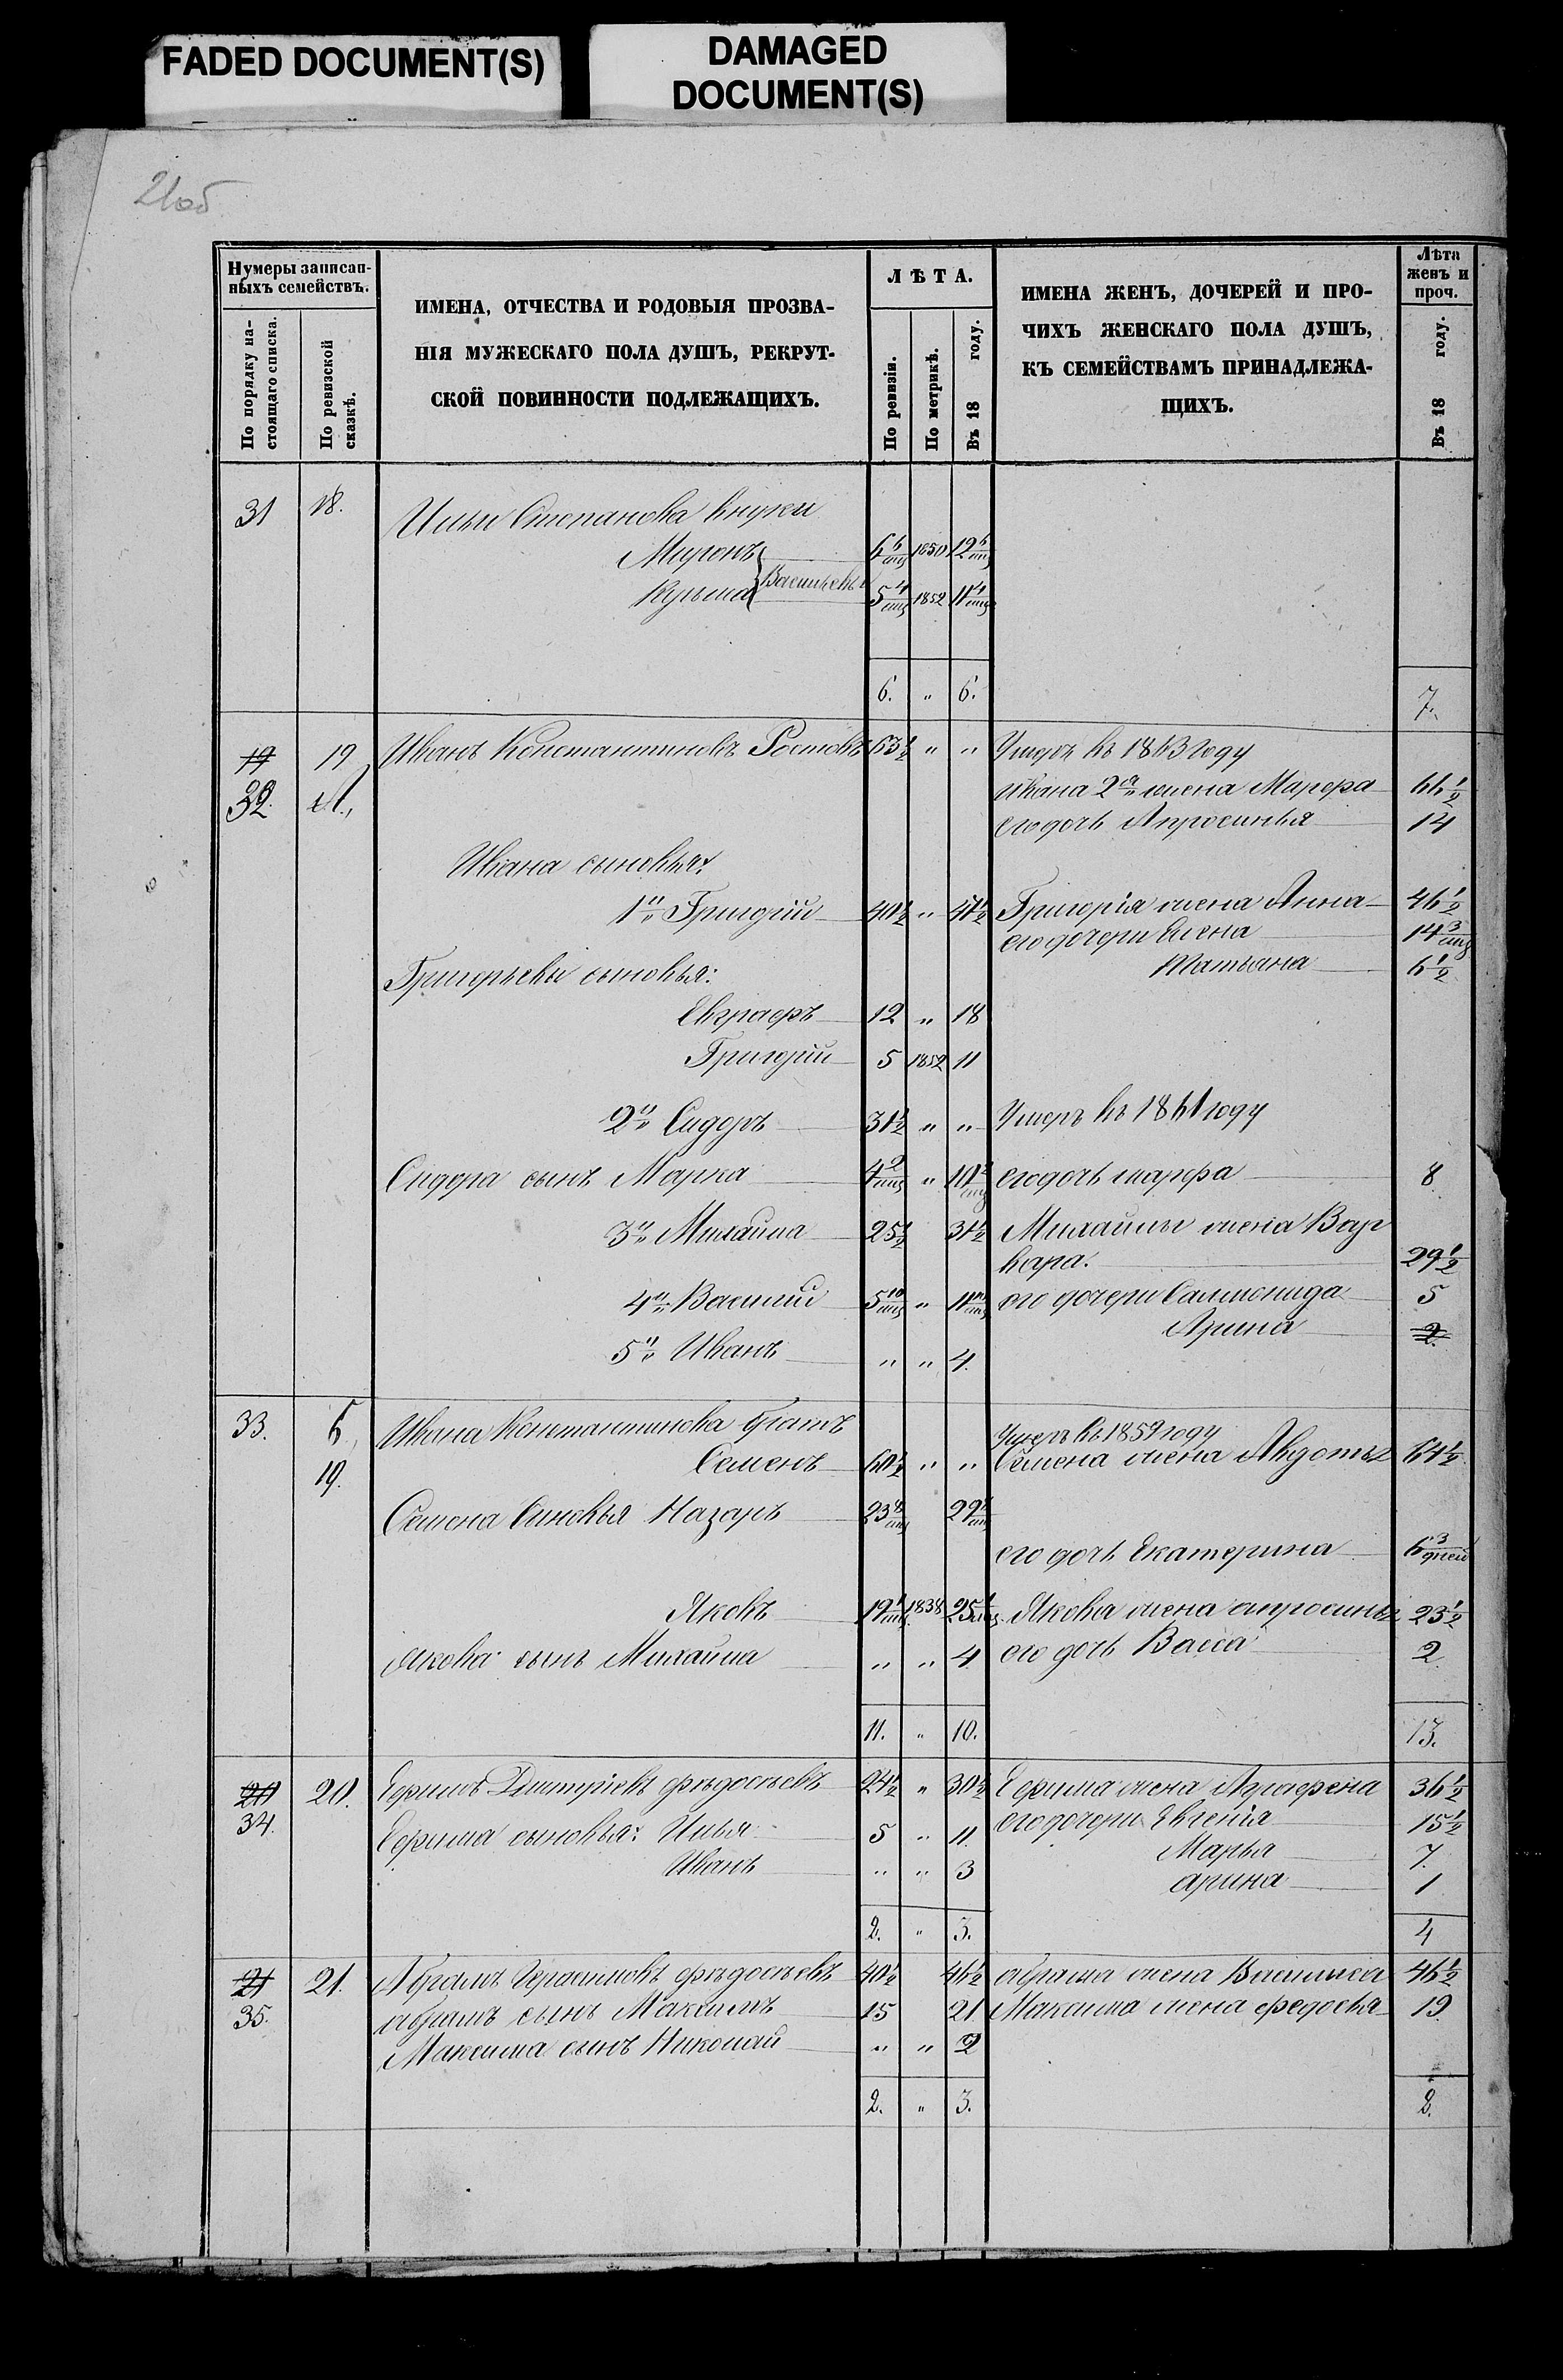 FADED DOCUMENT(S)
DAMAGED
DOCUMENT(S)
21об
Нумеры записан-
ныхъ семействъ.
По порядку на-
стоящаго списка.
По ревизской
сказкѣ.
ИМЕНА, ОТЧЕСТВА И РОДОВЫЯ ПРОЗВА-
НІЯ МУЖЕСКАГО ПОЛА ДУШЪ, РЕКРУТ-
СКОЙ ПОВИННОСТИ ПОДЛЕЖАЩИХЪ.
ЛѢТА.
По ревизіи.
По метрикѣ.
Въ 18 году.
ИМЕНА ЖЕНЪ, ДОЧЕРЕЙ И ПРО-
ЧИХЪ ЖЕНСКАГО ПОЛА ДУШЪ,
КЪ СЕМЕЙСТВАМЪ ПРИНАДЛЕЖА-
ЩИХЪ.
Лѣта
женъ и
проч.
Въ 18 году.
31 18. Ильи Степанова внуки
Миронъ 6 6/мц 1850 12 6/мц
Кузьма Васильевы 5 4/мц 1852 11 4/мц
6. " 6. 7.
19 19 Иванъ Константиновъ Ростовъ 63½ " " Умеръ въ 1863 году
32. А., Ивана 2я жена Марфа 66½
его дочь Апросинья 14
Ивана сыновья:
1й Григорій 40½ " 47½ Григорія жена Анна 46½
его дочери Елена 14 3/мц
Григорьевы сыновья: Татьяна 6½
Евграфъ 12 " 18
Григорій 5 1852 11
2й Сидоръ 31½ " " Умеръ въ 1861 году
Сидора сынъ Марка 4 2/мц " 10 2/мц его дочь марфа 8
3й Михайла 25½ 31½ Михайлы жена Вар
вара. 29½
4й Василий 5 10/мц " 11 10/мц его дочери Саломонида 5
Арина 2
5й Иванъ " " 4.
33. Б, Ивана Константинова братъ Умеръ въ 1859 году
19. Семенъ 60½ " " Семена жена Авдотья 64½
Семена Сыновья Назаръ 23 8/мц 29 8/мц
его дочь Екатерина 6 3/дней
Яковъ 19 1/мц 1838 25 1/мц Якова жена апросинья 23½
Якова сынъ Михайла " " 4 его дочь Васса 2.
11. " 10. 13.
20 20. Ефимъ Дмитріевъ федосѣевъ 24½ " 30½ Ефима жена Аграфена 36½
34. Ефима сыновья: Илья 5 " 11. его дочери Евгенія 15½
Иванъ " " 3 Марья 7.
арина 1
2. " 3. 4
21 21. Абрамъ Герасимовъ федосѣевъ 40½ 46½ абрама жена Василиса 46½
35. абрамъ сынъ Максимъ 15 21 Максима жена федосья 19.
Максима сынъ Николай " " 2
2. " 3. 2.